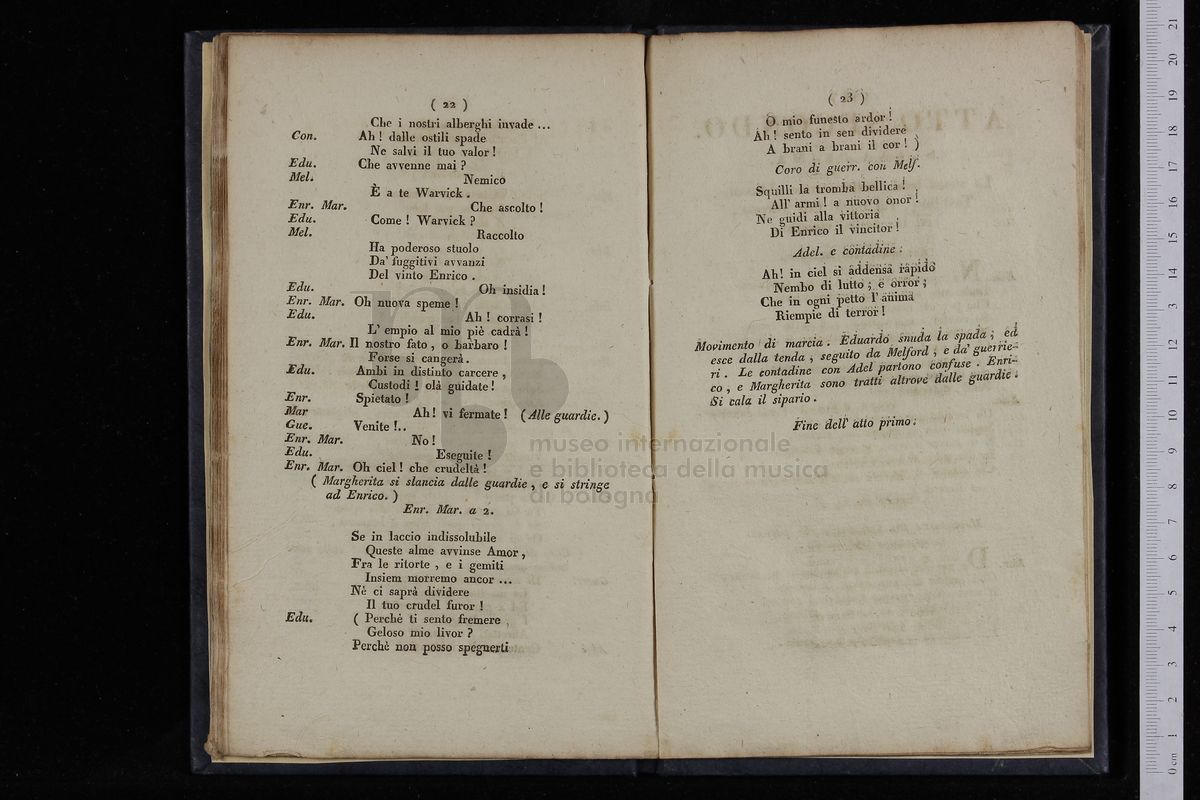 ( 22 )
Che i nostri alberghi invade ...
Con. Ah ! dalle ostili spade
Ne salvi il tuo valor !
Edu. Che avvenne mai ?
Mel. Nemico
È a te Warvick .
Enr. Mar. Che ascolto !
Edu. Come ! Warvick ?
Mel. Raccolto
Ha poderoso stuolo
Da' fuggitivi avvanzi
Del vinto Enrico .
Edu. Oh insidia !
Enr. Mar. Oh nuova speme !
Edu. Ah ! corrasi !
L' empio al mio piè cadrà !
Enr. Mar. Il nostro fato , o barbaro !
Forse si cangerà .
Edu. Ambi in distinto carcere ,
Custodi ! olà guidate !
Enr. Spietato !
Mar Ah! vi fermate ! ( Alle guardie. )
Gue. Venite !..
Enr. Mar. No !
Edu. Eseguite !
Enr. Mar. Oh ciel ! che crudeltà !
( Margherita si slancia dalle guardie , e si stringe
ad Enrico. )
Enr. Mar. a 2.
Se in laccio indissolubile
Queste alme avvinse Amor ,
Fra le ritorte , e i gemiti
Insiem morremo ancor ...
Nè ci saprà dividere
Il tuo crudel furor !
Edu. ( Perchè ti sento fremere
Geloso mio livor ?
Perchè non posso spegnerti
( 23 )
O mio funesto ardor !
Ah ! sento in sen dividere
A brani a brani il cor ! )
Coro di guerr. con Melf.
Squilli la tromba bellica !
All' armi ! a nuovo onor !
Ne guidi alla vittoria
Di Enrico il vincitor !
Adel. e contadine .
Ah! in ciel si addensa rapido
Nembo di lutto , e orror ;
Che in ogni petto l' anima
Riempie di terror !
Movimento di marcia . Eduardo snuda la spada ; ed
esce dalla tenda , seguito da Melford , e da' guerrie-
ri . Le contadine con Adel partono confuse . Enri-
co , e Margherita sono tratti altrove dalle guardie .
Si cala il sipario .
Fine dell' atto primo .
museo internazionale
e biblioteca della musica
di bologna
0 cm 1 2 3 4 5 6 7 8 9 10 11 12 13 14 15 16 17 18 19 20 21